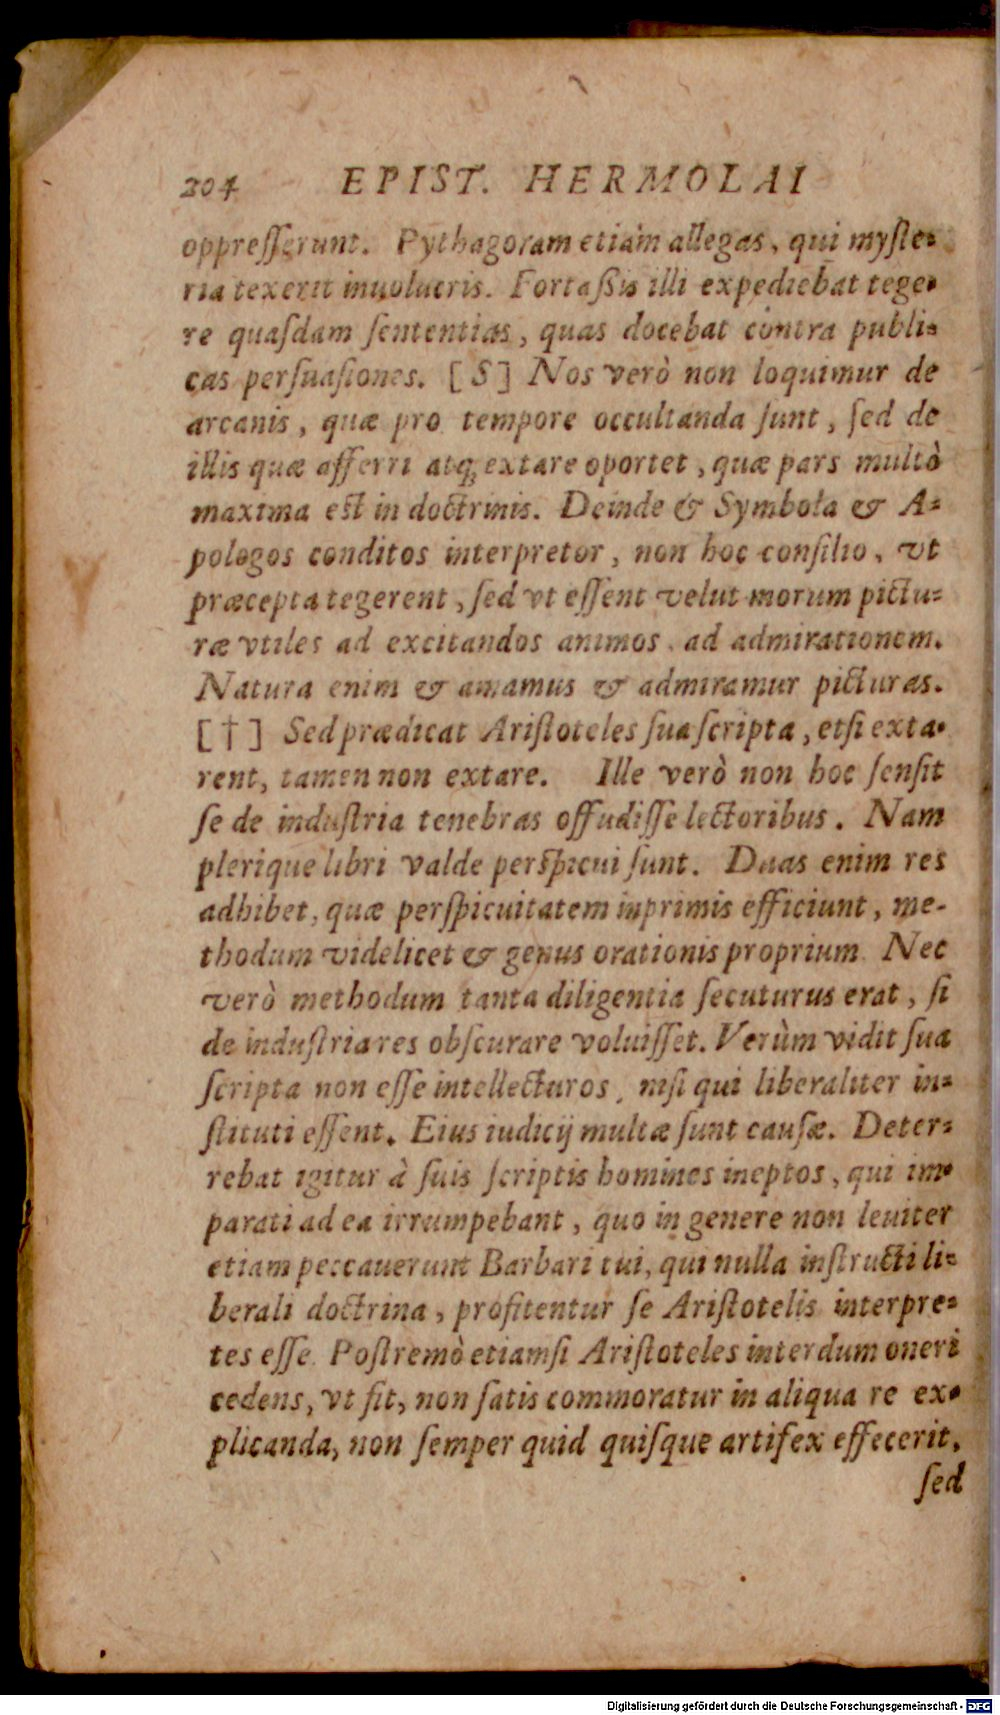 204 EPIST. HERMOLAI
oppreſſerunt. Pythagoram etiam allegas, qui myſte⸗
ria texerit inuolucris. Fortaßis illi expediebat tege⸗
re quaſdam ſententias, quas docebat contra publi⸗
cas perſuaſiones. [S] Nos verò non loquimur de
arcanis, quæ pro tempore occultanda ſunt, ſed de
illis quæ afferri atq; extare oportet, quæ pars multò
maxima eſt in doctrinis. Deinde & Symbola & A⸗
pologos conditos interpretor, non hoc conſilio, vt
præcepta tegerent, ſed vt eſſent velut morum pictu⸗
ræ vtiles ad excitandos animos, ad admirationem.
Natura enim & amamus & admiramur picturas.
[†] Sed prædicat Ariſtoteles ſua ſcripta, etſi exta⸗
rent, tamen non extare. Ille verò non hoc ſenſit
ſe de induſtria tenebras offudiſſe lectoribus. Nam
plerique libri valde perſpicui ſunt. Duas enim res
adhibet, quæ perſpicuitatem inprimis efficiunt, me-
thodum videlicet & genus orationis proprium. Nec
verò methodum tanta diligentia ſecuturus erat, ſi
de induſtria res obſcurare voluiſſet. Verùm vidit ſua
ſcripta non eſſe intellecturos, niſi qui liberaliter in⸗
ſtituti eſſent. Eius iudicij multæ ſunt cauſæ. Deter⸗
rebat igitur à ſuis ſcriptis homines ineptos, qui im⸗
parati ad ea irrumpebant, quo in genere non leuiter
etiam peccauerunt Barbari tui, qui nulla inſtructi li⸗
berali doctrina, profitentur ſe Ariſtotelis interpre⸗
tes eſſe. Poſtremò etiamſi Ariſtoteles interdum oneri
cedens, vt fit, non ſatis commoratur in aliqua re ex⸗
plicanda, non ſemper quid quiſque artifex effecerit,
ſed
Digitalisierung gefördert durch die Deutsche Forschungsgemeinschaft - DFG